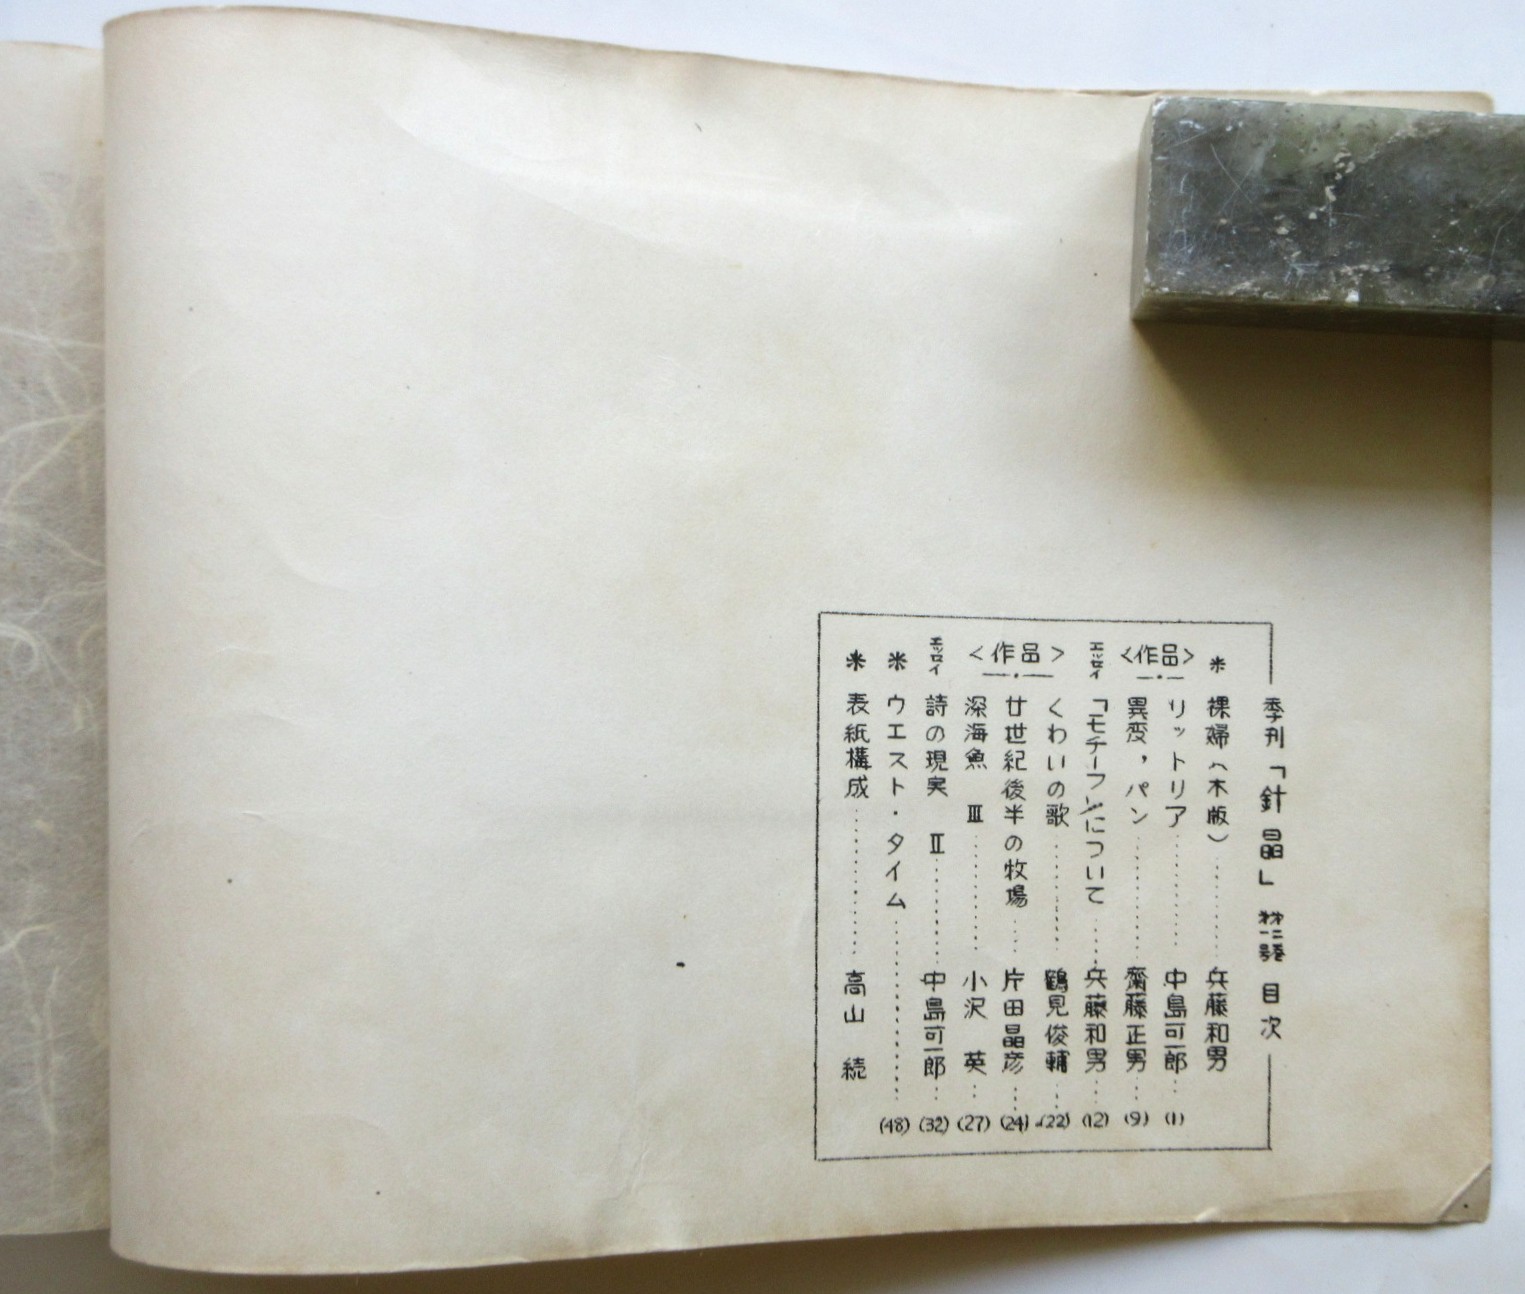 季刊「針晶」第二號 目次
* 裸婦(木版)………兵藤和男
<作品>
リットリア………中島可一郎…(1)
異変,パン………齋藤正男…(9)
エッセイ 「モチーフ」について……兵藤和男…(12)
<作品>
くわいの歌………鶴見俊輔…(22)
廿世紀後半の牧場……片田晶彦…(24)
深海魚 Ⅲ………小沢 英…(27)
エッセイ 詩の現実 Ⅱ………中島可一郎…(32)
* ウエスト・タイム………(48)
* 表紙構成………高山 続